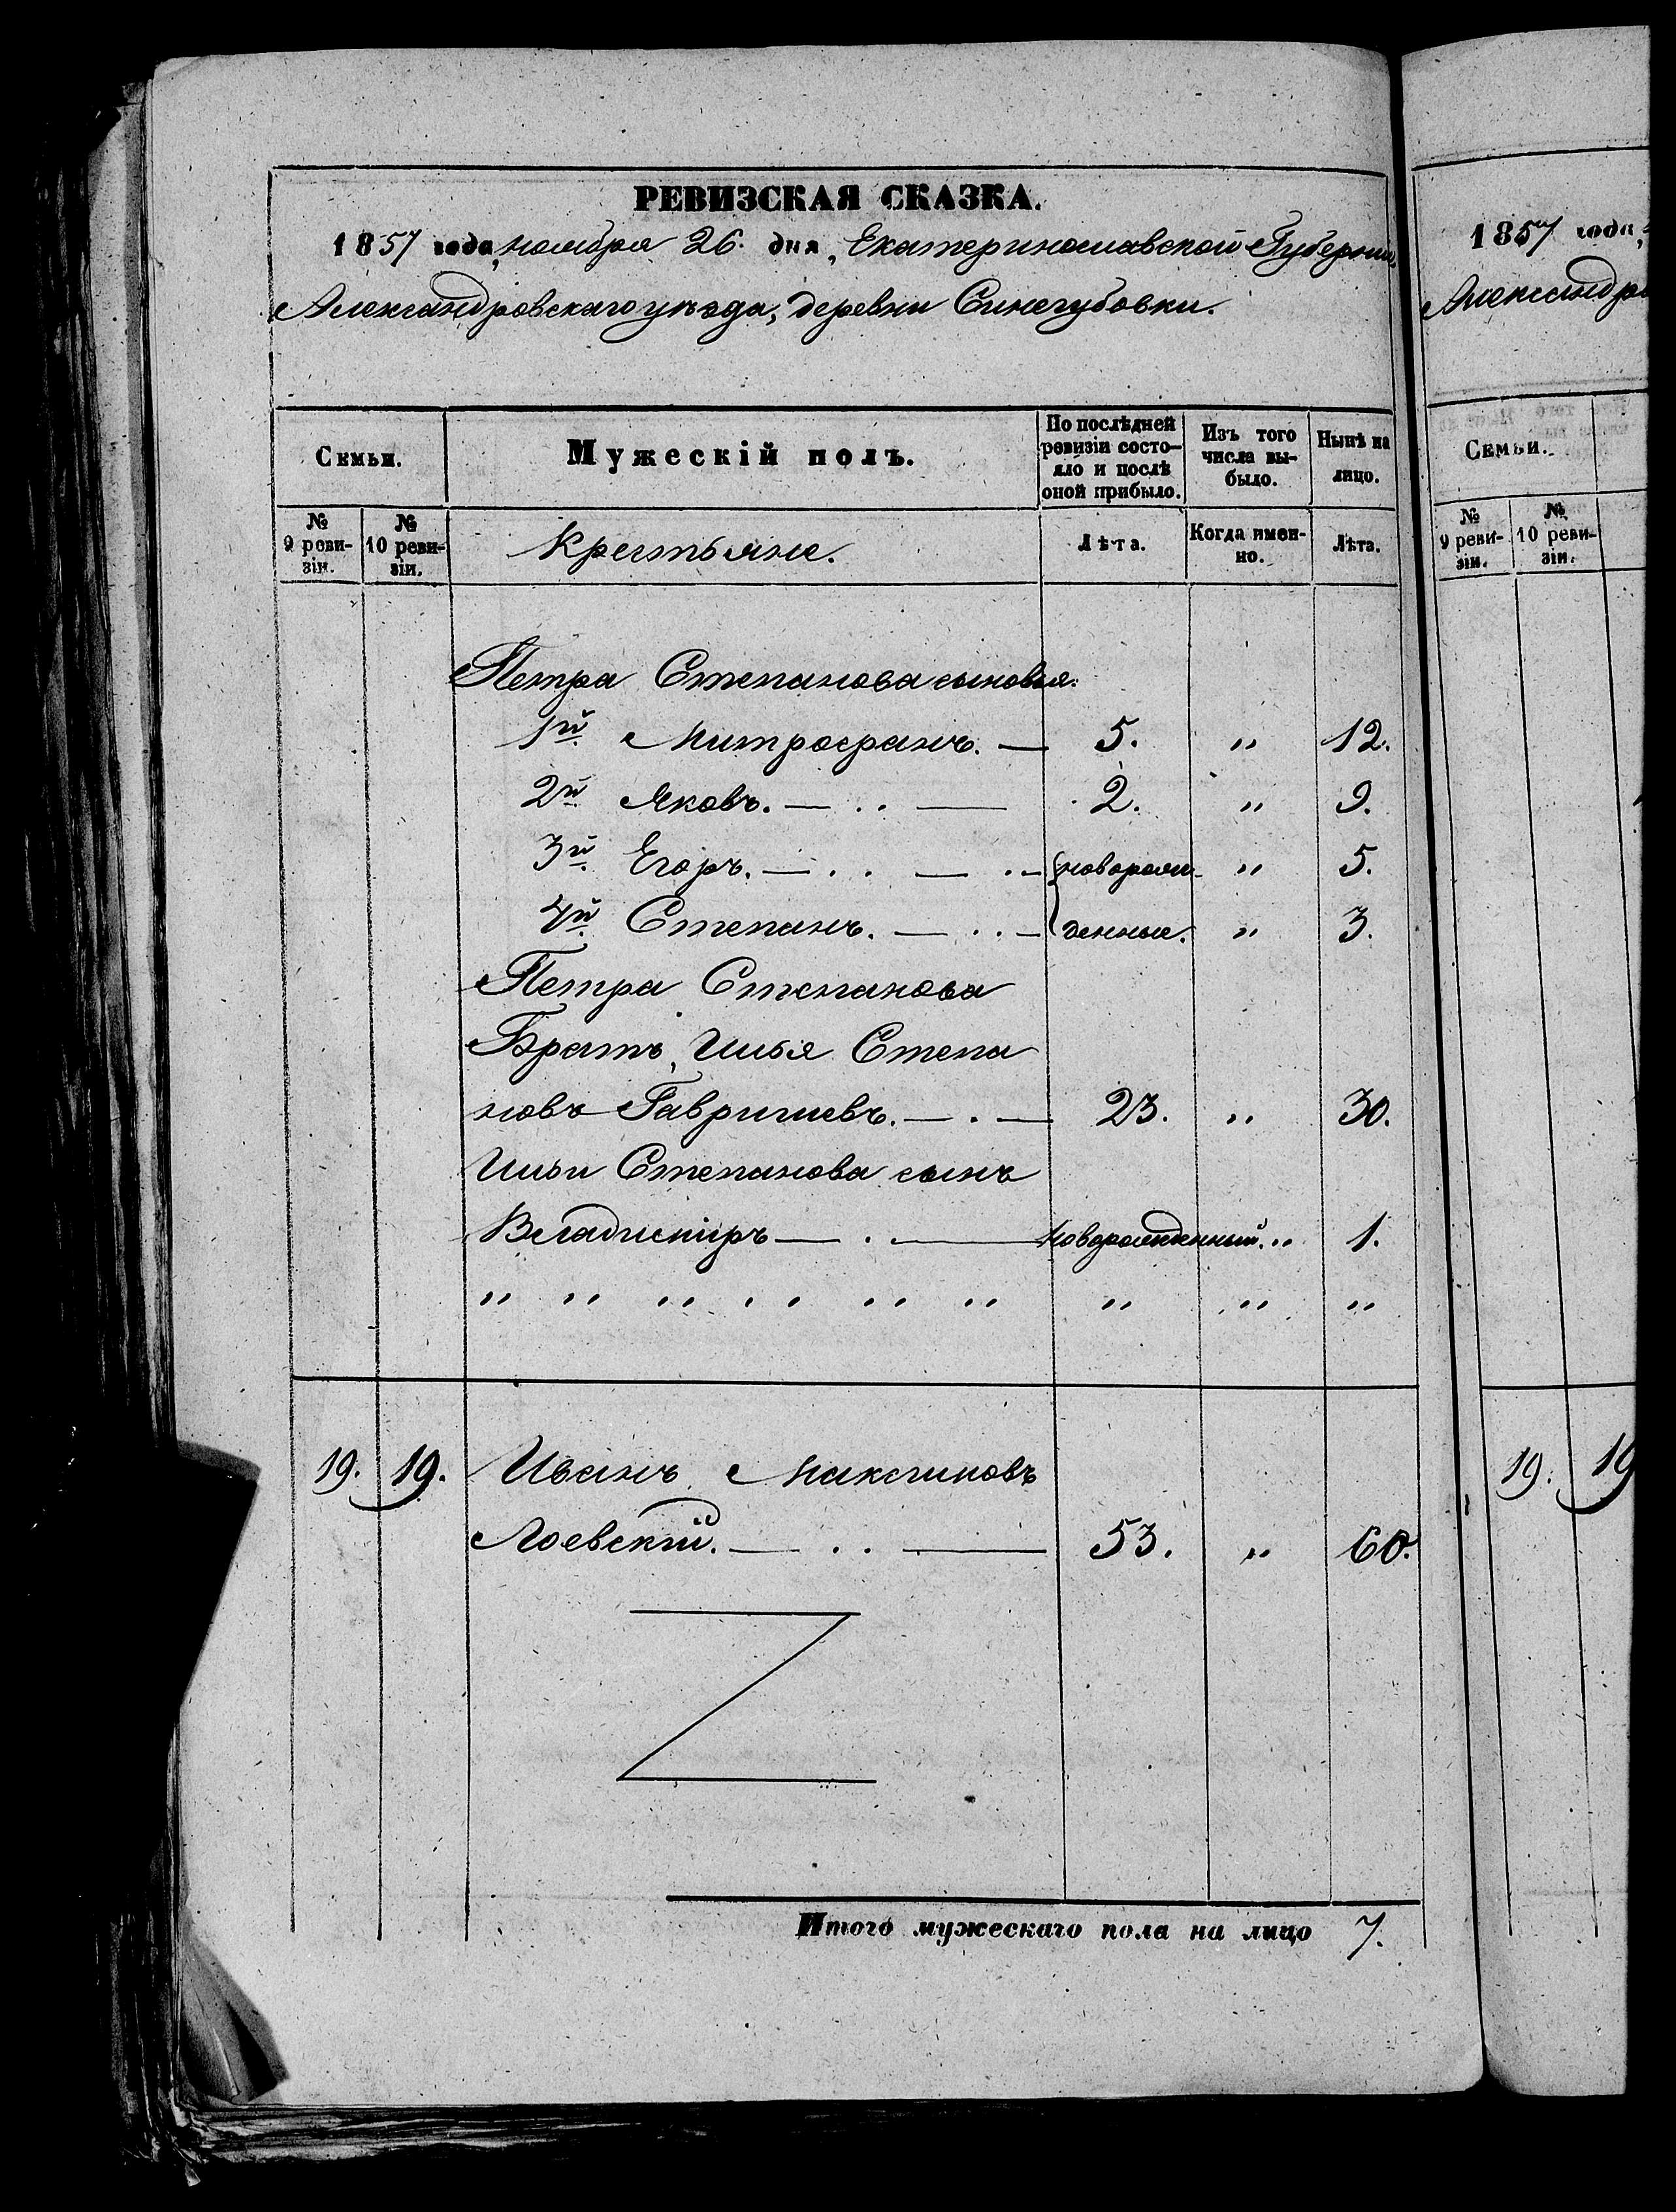 РЕВИЗСКАЯ СКАЗКА.
1857 года, ноября 26. дня, Екатеринославской Губернии,
Александровскаго уѣзда, деревни Синегубовки.
Семьи.
Мужескій полъ.
По послѣдней ревизіи состо-
яло и послѣ оной прибыло.
Изъ того числа вы-
было.
Нынѣ на лицо.
№ 9 реви-
зіи.
№ 10 реви-
зіи.
Крестьяне.
Лѣта.
Когда имен-
но.
Лѣта.
Петра Степанова сыновья:
1й Митрофанъ. — 5. " 12.
2й Яковъ. — . . — 2. " 9.
3й Егоръ. — . . — . — новорож- " 5.
4й Степанъ. — . . — денные. " 3.
Петра Степанова
Братъ, Илья Степа
новъ Гавришевъ. — . — 23. " 30.
Ильи Степанова сынъ
Владиміръ — . — новорожденный. " 1.
" " " " " " " " "
19. 19. Иванъ Максимовъ
Лоевскій. — . . — 53. " 60.
Итого мужескаго пола на лицо 7.
1857 года,
Александро
Семьи.
№ 9 реви-
зіи.
№ 10 реви-
зіи.
19. 19